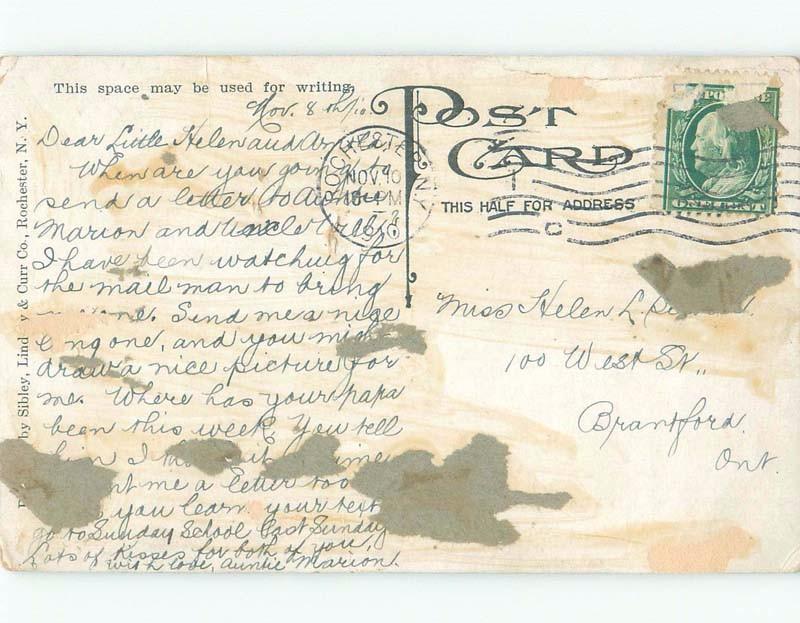 This space may be used for writing.
Nov. 8th/10.
Dear Little Helen and
When are you going to
send a letter to Auntie
Marion and Uncle
I have been watching for
the mail man to bring
me one. Send me a nice
one, and you might
draw a nice picture for
me. Where has your papa
been this week You tell
him I
me a letter too
you learn your text
go to Sunday School Last Sunday
Lots of kisses for both of you,
with love, Auntie Marion.
by Sibley, Lind y & Curr Co., Rochester, N. Y.
POST CARD
THIS HALF FOR ADDRESS
ROCHESTER N.Y.
NOV 9
10 PM
1910
C
ONE CENT
Miss Helen L.
100 West St.,
Brantford.
Ont.